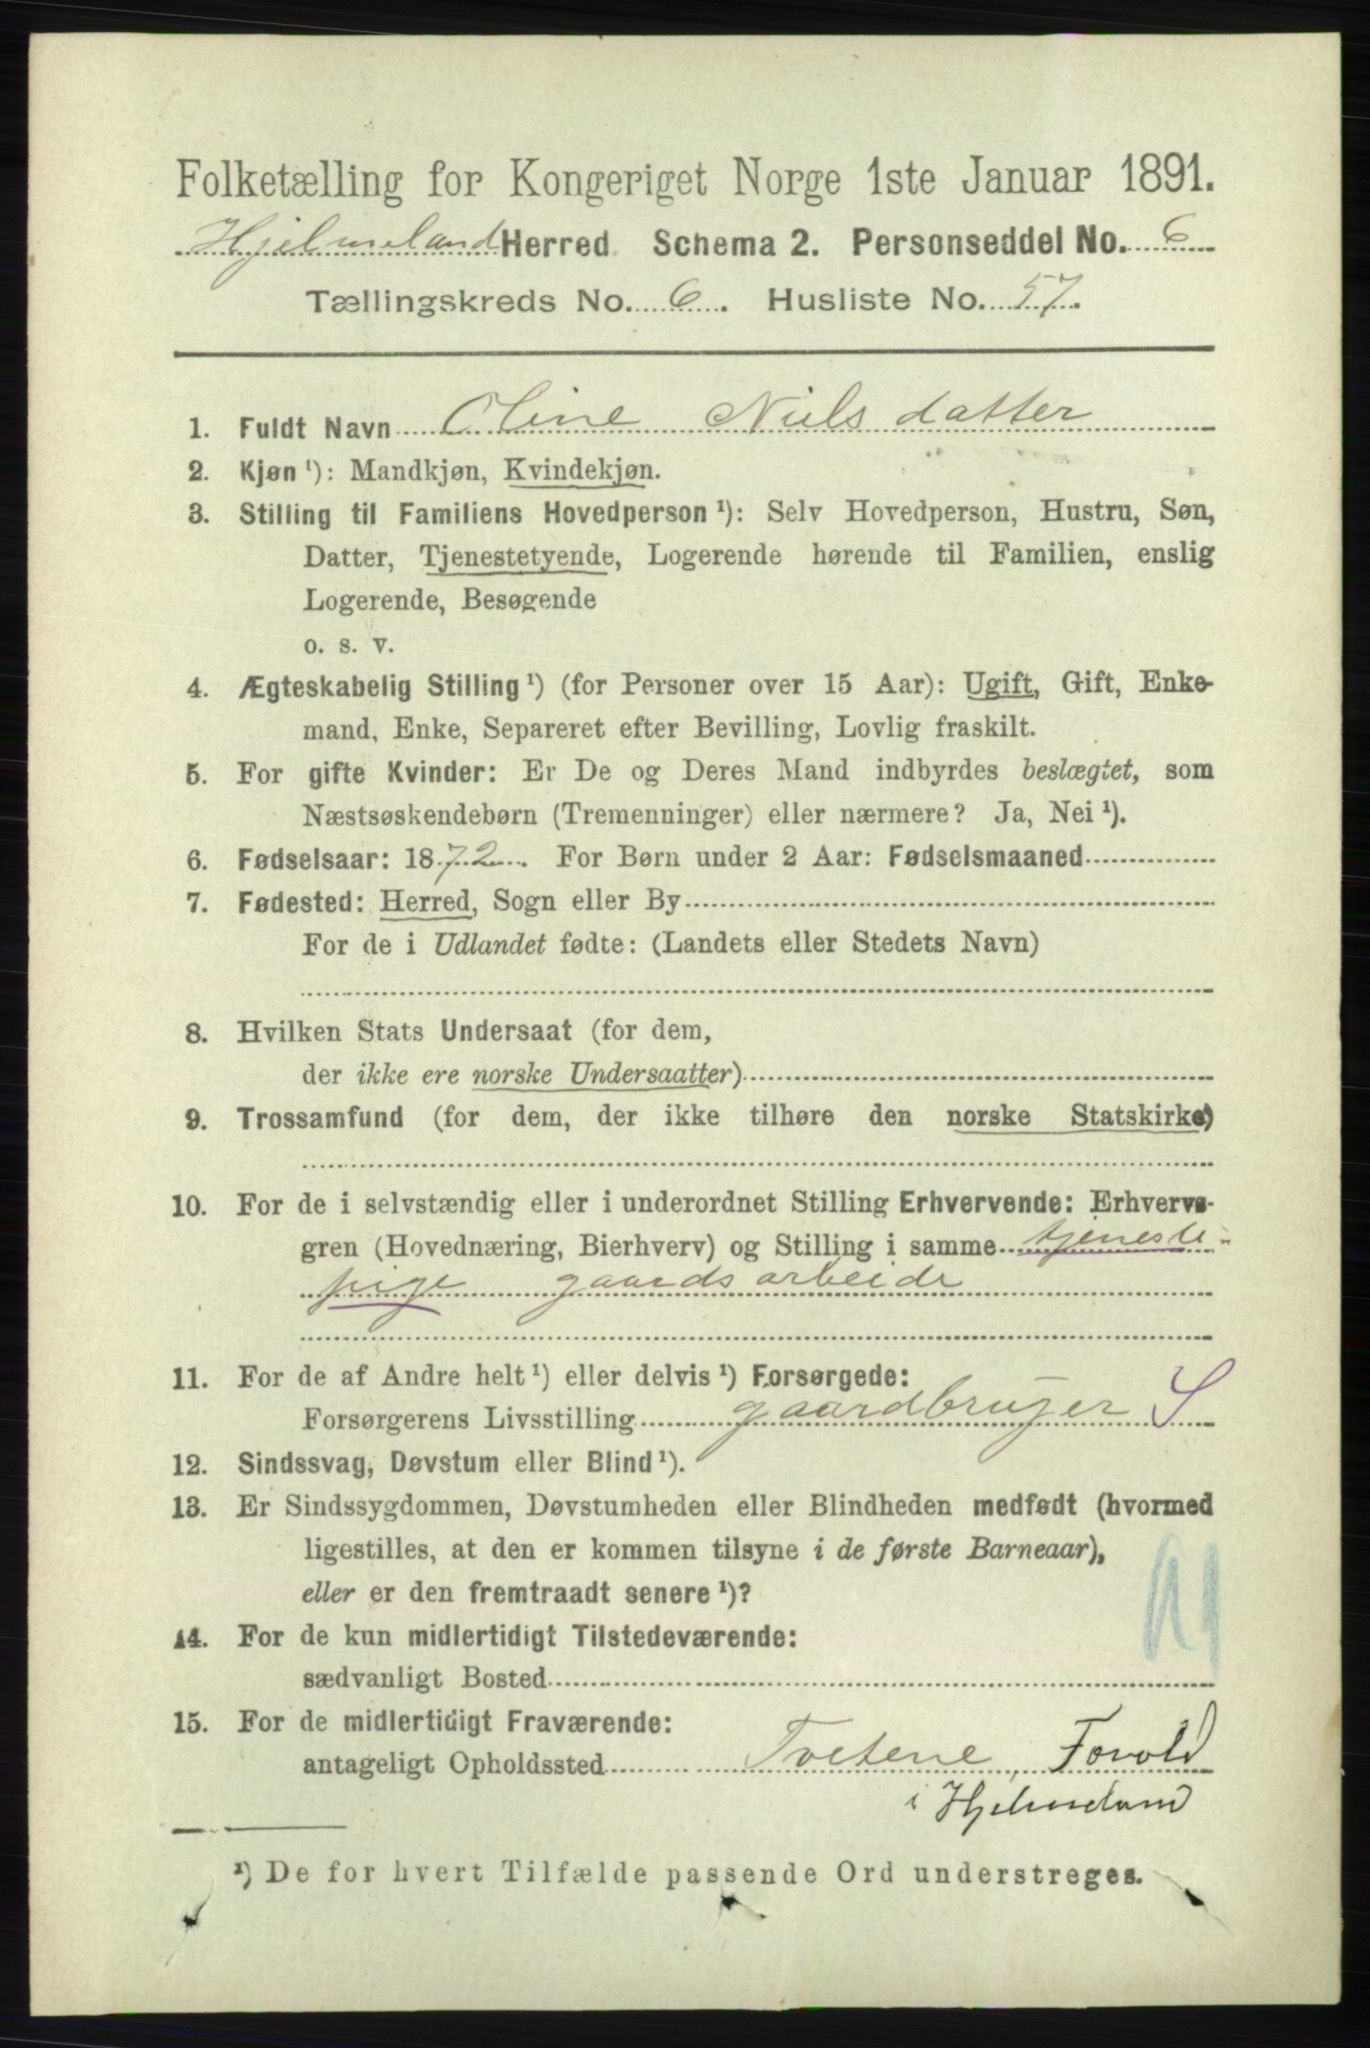 Folketælling for Kongeriget Norge 1ste Januar 1891.
Hjelmeland Herred Schema 2. Personseddel No. 6
Tællingskreds No. 6. Husliste No. 57.
1. Fuldt Navn Oline Nielsdatter
2. Kjøn ¹): Mandkjøn, Kvindekjøn.
3. Stilling til Familiens Hovedperson ¹): Selv Hovedperson, Hustru, Søn,
Datter, Tjenestetyende, Logerende hørende til Familien, enslig
Logerende, Besøgende
o. s. v.
4. Ægteskabelig Stilling ¹) (for Personer over 15 Aar): Ugift, Gift, Enke-
mand, Enke, Separeret efter Bevilling, Lovlig fraskilt.
5. For gifte Kvinder: Er De og Deres Mand indbyrdes beslægtet, som
Næstsøskendebørn (Tremenninger) eller nærmere? Ja, Nei ¹).
6. Fødselsaar: 1872. For Børn under 2 Aar: Fødselsmaaned
7. Fødested: Herred, Sogn eller By
For de i Udlandet fødte: (Landets eller Stedets Navn)
8. Hvilken Stats Undersaat (for dem,
der ikke ere norske Undersaatter)
9. Trossamfund (for dem, der ikke tilhøre den norske Statskirke)
10. For de i selvstændig eller i underordnet Stilling Erhvervende: Erhvervs-
gren (Hovednæring, Bierhverv) og Stilling i samme tjeneste-
pige gaardsarbeide
11. For de af Andre helt ¹) eller delvis ¹) Forsørgede:
Forsørgerens Livsstilling gaardbruger S
12. Sindssvag, Døvstum eller Blind ¹).
13. Er Sindssygdommen, Døvstumheden eller Blindheden medfødt (hvormed
ligestilles, at den er kommen tilsyne i de første Barneaar),
eller er den fremtraadt senere ¹)?
14. For de kun midlertidigt Tilstedeværende:
sædvanligt Bosted
15. For de midlertidigt Fraværende:
antageligt Opholdssted Tvetene,
i Hjelmeland
¹) De for hvert Tilfælde passende Ord understreges.